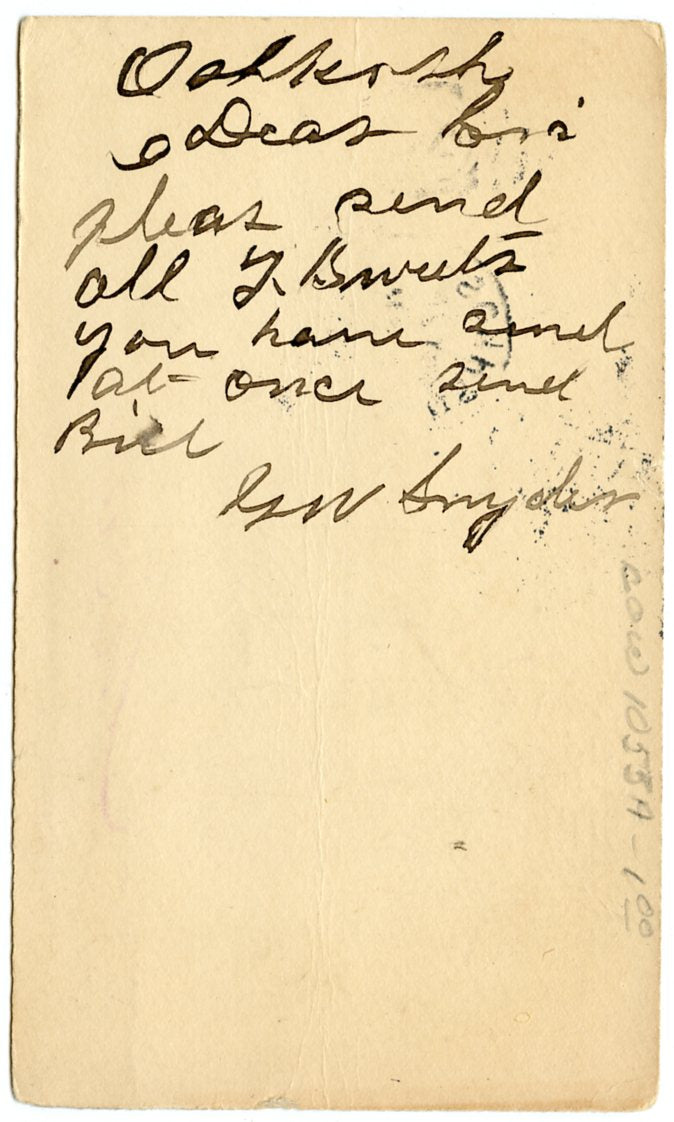 Oshkosh
Dear Sir
pleas send
all Y. Sweets
you have send
at once send
Bill
GW Snyder